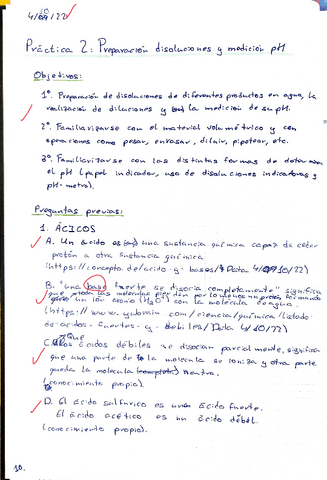 4/10/22
Práctica 2: Preparación disoluciones y medición pH
Objetivos:
1º. Preparación de disoluciones de diferentes productos en agua, la
realización de diluciones y la medición de su pH.
2º. Familiarizarse con el material volumétrico y con
operaciones como pesar, enrasar, diluir, pipetear, etc.
3º. Familiarizarse con las distintas formas de determinar
el pH (papel indicador, uso de disoluciones indicadoras y
pH-metro).
Preguntas previas:
1. ÁCIDOS
A. Un ácido es una sustancia química capaz de ceder
protón a otra sustancia química
(https://concepto.de/acido-y-bases/ Data 4/10/22)
B. "una base fuerte se disocia completamente" significa
que todas las moléculas pierden por lo menos un protón formando
un ión (H3O+) con la molécula de agua.
(https://www.yubrain.com/ciencia/quimica/listado-
de-acidos-fuertes-y-debiles/ Data 4/10/22)
C. Que los ácidos débiles se disocian parcialmente, significa
que una parte de la molécula se ioniza y otra parte
queda la molécula neutra.
(conocimiento propio).
D. El ácido sulfúrico es un ácido fuerte.
El ácido acético es un ácido débil.
(conocimiento propio).
10.